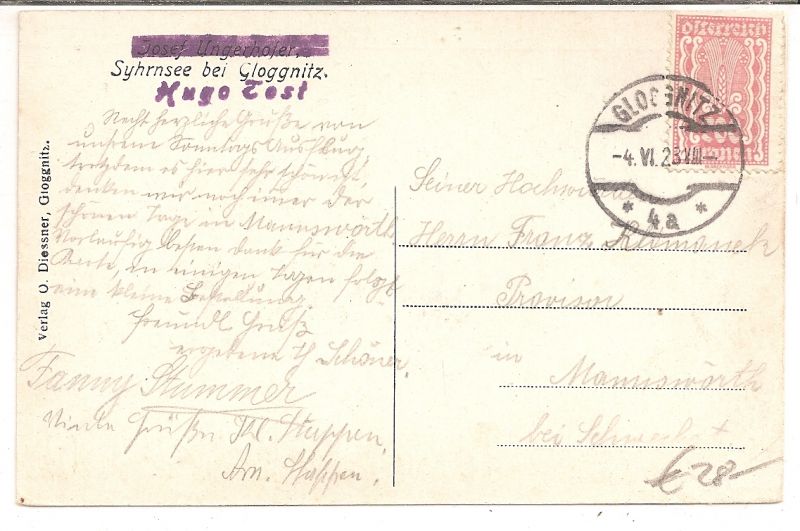 Josef Ungerhofer,
Syhrnsee bei Gloggnitz.
Hugo Tost
Recht herzliche Grüße von
unserem Sonntags Ausflug,
trotzdem es hier sehr schön ist,
denken wir noch immer der
schönen Tage in Mannswörth
Vorläufig besten dank für die
Karte, in einigen Tagen folgt
eine kleine Bestellung.
freundl Gruß
ergebene Schöner
Fanny Stummer
Viele Grüße
Verlag O. Diessner, Gloggnitz.
Österreich
Kronen
GLOGGNITZ
-4.VI.23 VIII-
* 4a *
Seiner Hochwürden
Herrn Franz
Provisor
in
Mannswörth
bei Schwechat
€ 28-